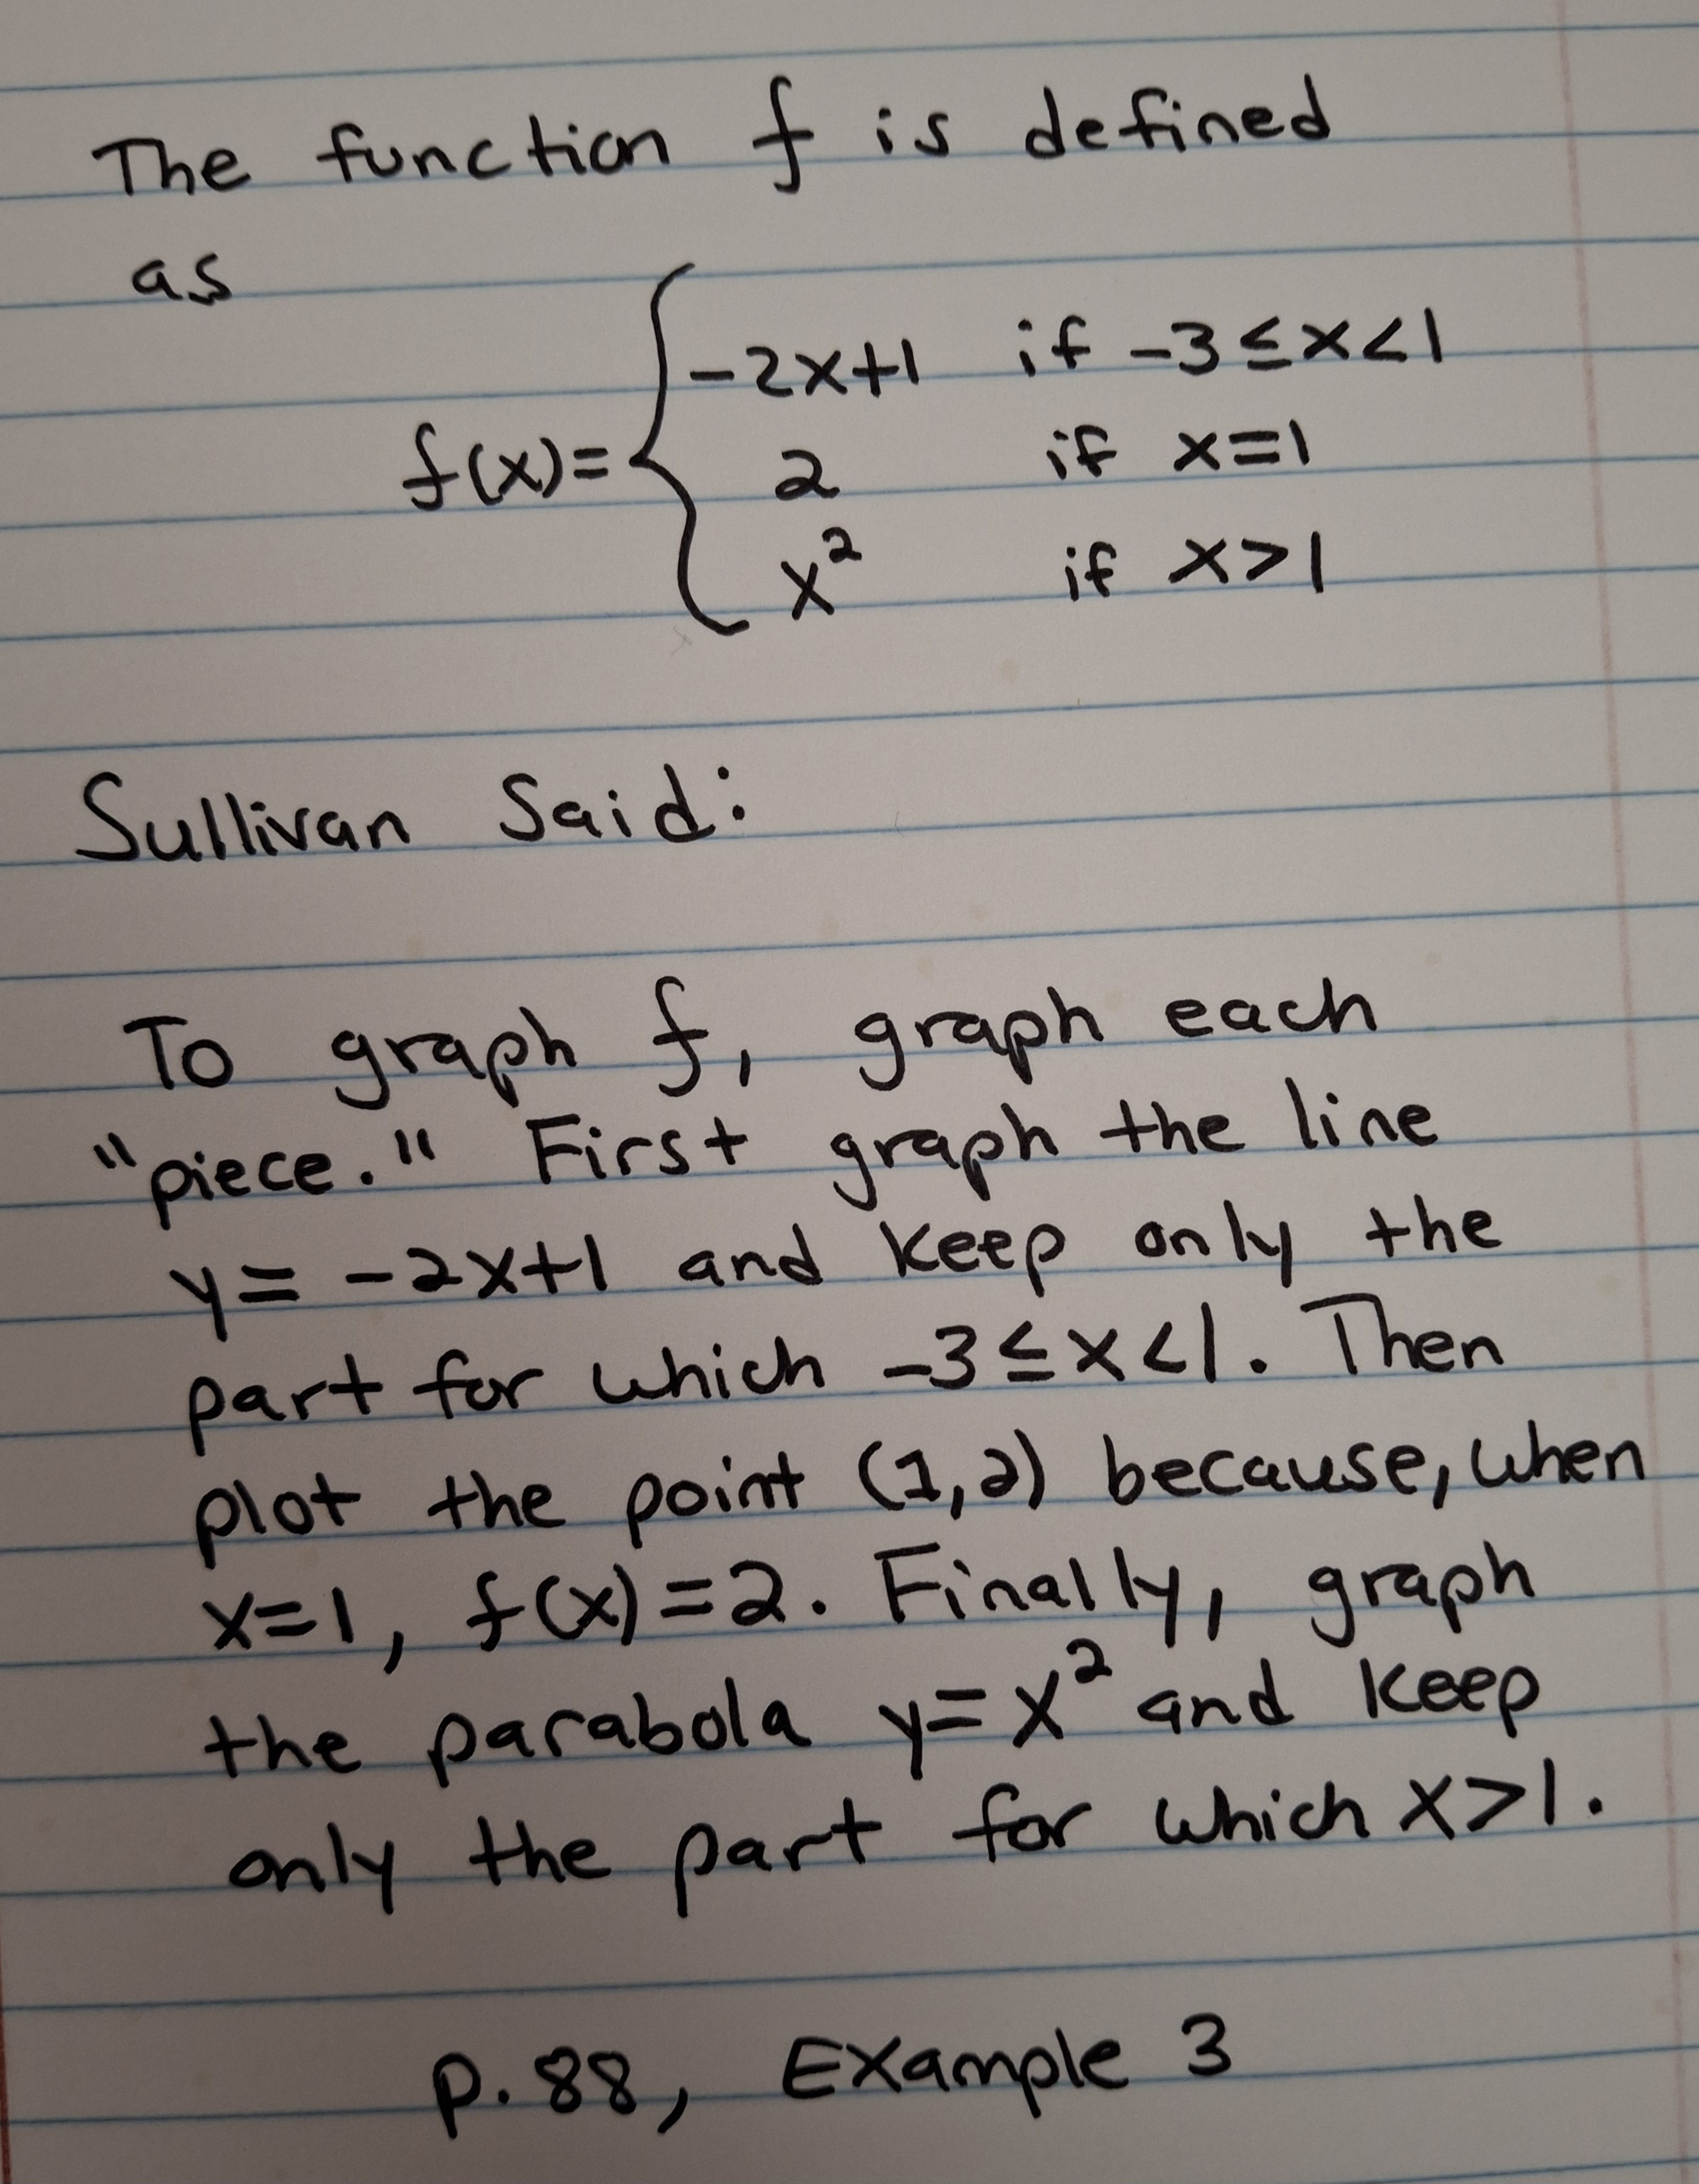 The function f is defined
as
f(x)= { -2x+1 if -3≤x<1
2 if x=1
x² if x>1
Sullivan Said:
To graph f, graph each
"piece." First graph the line
y= -2x+1 and keep only the
part for which -3≤x<1. Then
plot the point (1,2) because, when
x=1, f(x)=2. Finally, graph
the parabola y=x² and keep
only the part for which x>1.
p. 88, Example 3